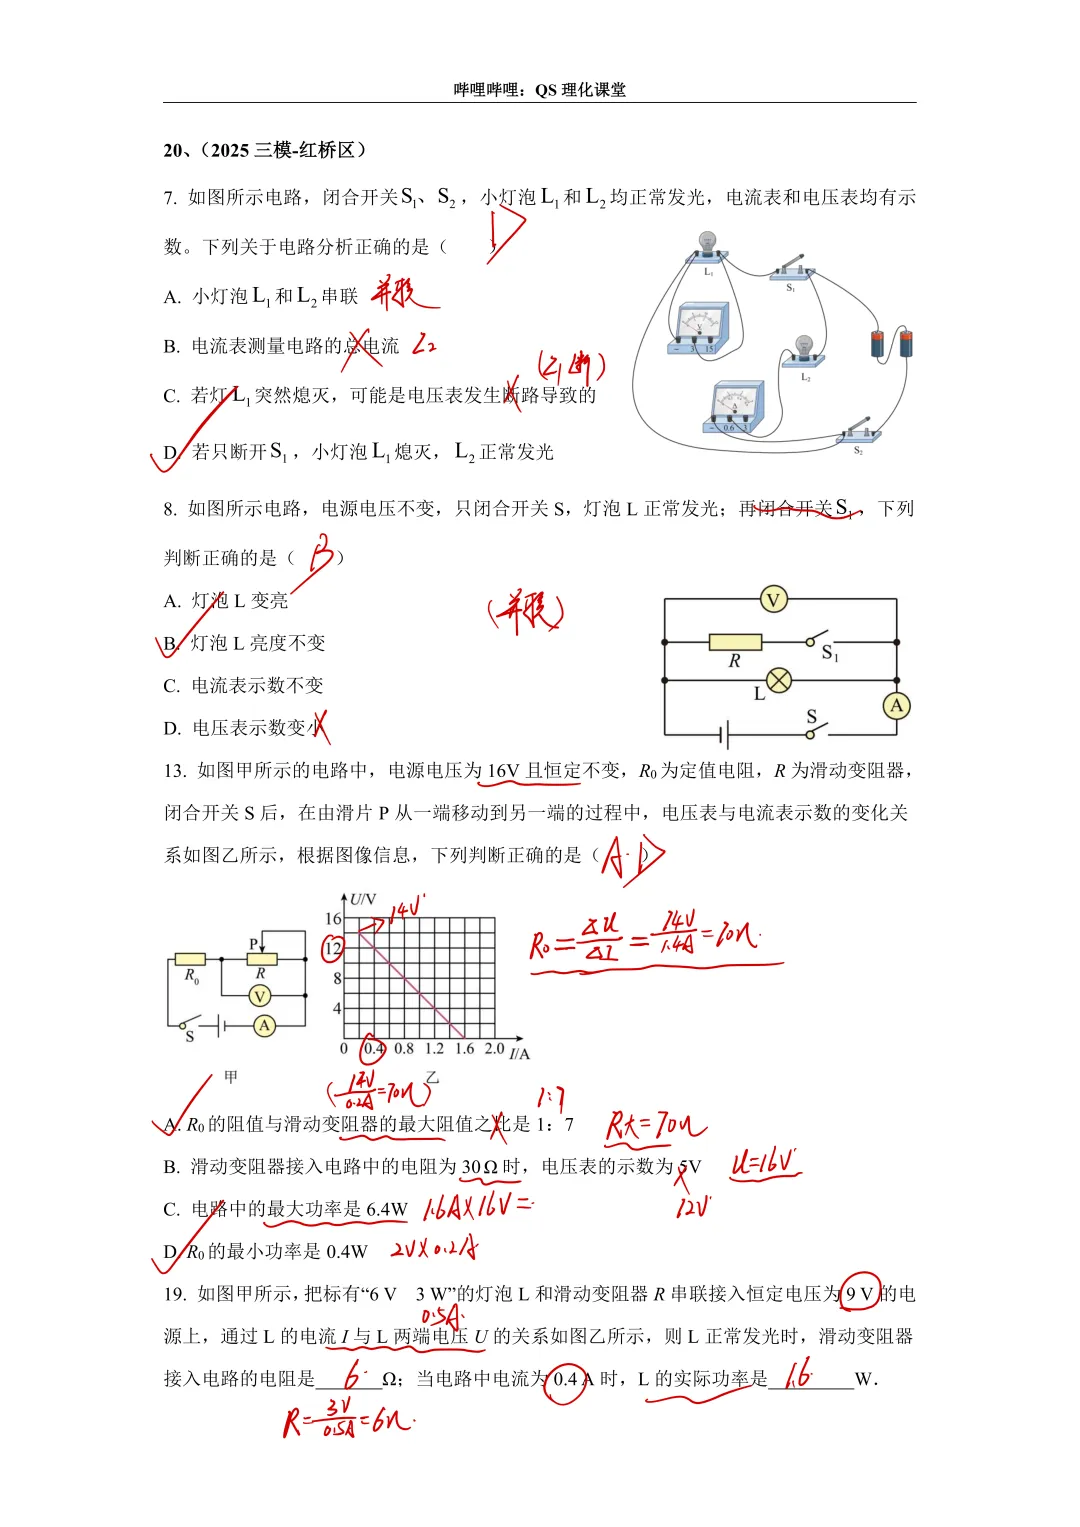 哔哩哔哩：QS 理化课堂
20、（2025 三模-红桥区）
7. 如图所示电路，闭合开关S₁、S₂，小灯泡L₁和L₂均正常发光，电流表和电压表均有示
数。下列关于电路分析正确的是（ D ）
A. 小灯泡L₁和L₂串联 并联
B. 电流表测量电路的总电流 L₂
(L₁断)
C. 若灯L₁突然熄灭，可能是电压表发生断路导致的
D. 若只断开S₁，小灯泡L₁熄灭，L₂正常发光
L₁
S₁
L₂
S₂
V
- 3 15
A
- 0.6 3
8. 如图所示电路，电源电压不变，只闭合开关 S，灯泡 L 正常发光；再闭合开关S₁，下列
判断正确的是（ B ）
A. 灯泡 L 变亮
(并联)
B. 灯泡 L 亮度不变
C. 电流表示数不变
D. 电压表示数变小
V
R S₁
L
A
S
13. 如图甲所示的电路中，电源电压为 16V 且恒定不变，R₀为定值电阻，R 为滑动变阻器，
闭合开关 S 后，在由滑片 P 从一端移动到另一端的过程中，电压表与电流表示数的变化关
系如图乙所示，根据图像信息，下列判断正确的是（ A D ）
P
R₀ R
V
S A
甲
U/V
14V
16
12
8
4
0 0.4 0.8 1.2 1.6 2.0 I/A
乙
R₀=ΔU/ΔI=14V/1.4A=10Ω
(14V/0.2A=70Ω)
1:7
A. R₀的阻值与滑动变阻器的最大阻值之比是 1：7 R大=70Ω
B. 滑动变阻器接入电路中的电阻为 30 Ω 时，电压表的示数为 5V U=16V
12V
C. 电路中的最大功率是 6.4W 1.6A×16V=
D. R₀的最小功率是 0.4W 2V×0.2A
19. 如图甲所示，把标有“6 V 3 W”的灯泡 L 和滑动变阻器 R 串联接入恒定电压为 9 V 的电
0.5A
源上，通过 L 的电流 I 与 L 两端电压 U 的关系如图乙所示，则 L 正常发光时，滑动变阻器
接入电路的电阻是 6 Ω；当电路中电流为 0.4 A 时，L 的实际功率是 1.6 W．
R=3V/0.5A=6Ω